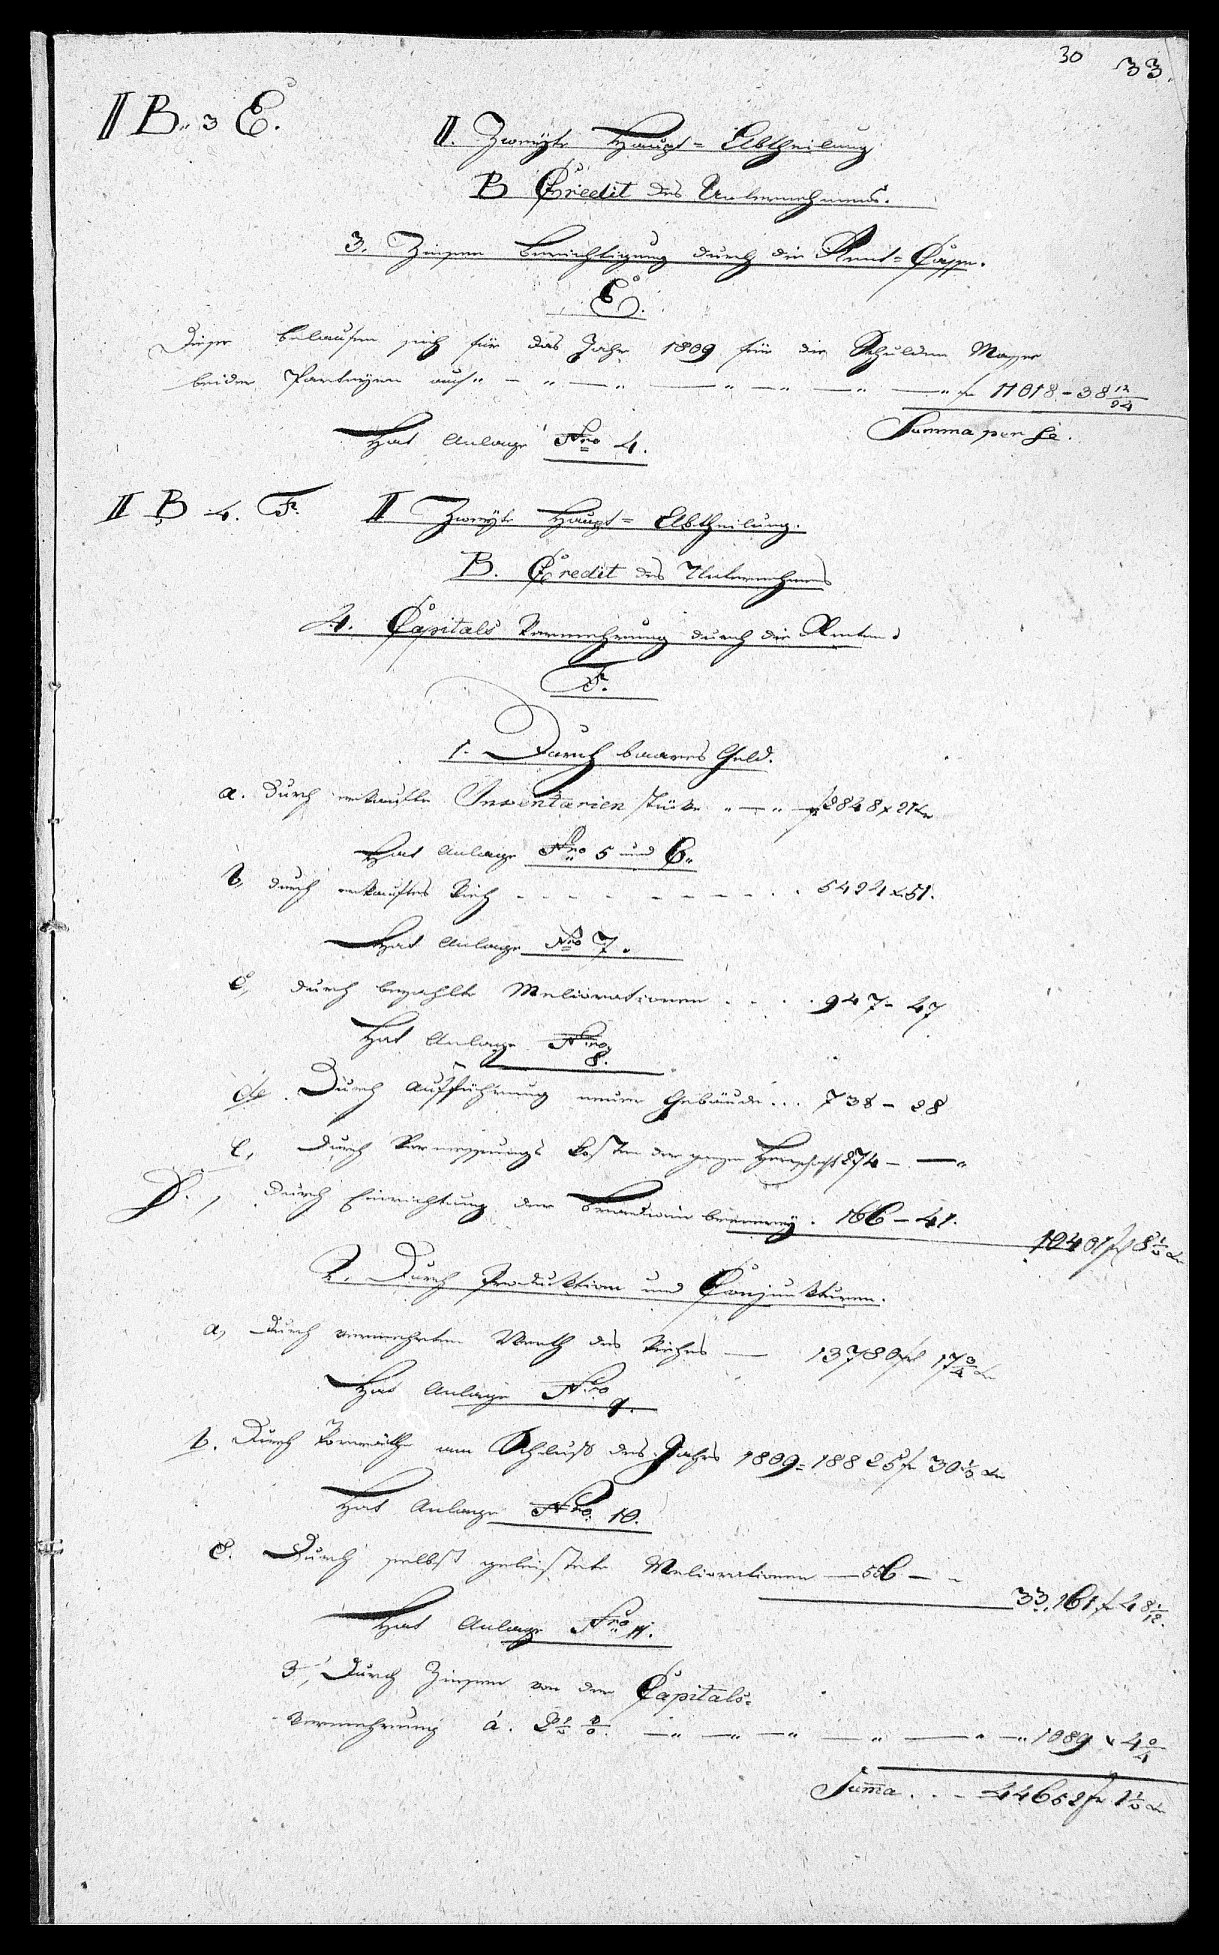 30 33.
II B. 3 E.
II. Zweÿte Haupt-Abtheilung
B Credit des Unternehmens.
3. Zinsen Berichtigung durch die Rent-Casse.
E.
Diese belaufen sich für das Jahr 1809 für die Schulden Masse
beider Partheyen auf " – " — " — " — " — " f 11018 – 38 12/24
Summa per se.
Hat Anlage Nro 4.
II B 4. F. II Zweÿte Haupt-Abtheilung.
B. Credit des Unternehmens
4. Capitals Vermehrung durch die Renten.
F.
1. Durch baares Geld.
a. durch erkaufte Inventarien stücke " — " — f 2848 x 21 kr
Hat Anlage Nro 5 und 6.
b, durch erkauftes Vieh - - - - - - - - 5424 x 51.
Hat Anlage Nro 7.
c, durch bezahlte Meliorationen . . . . 947 – 47
Hat Anlage Nro 8.
d. Durch Aufführung neuer Gebäude . . . 738 – 28
e, Durch Vermessungs Kosten der ganzen Herrschaft 274 – — "
f., durch Einrichtung der Brandwein brennerey. 166 – 41.
10401 fl 8 1/2 kr
2. Durch Produktion und Conjunkturen.
a, Durch vermehrten Werth des Viehes — 13780 fl 17 2/4 kr
Hat Anlage Nro 9.
b. Durch Vorräthe am Schluß des Jahrs 1809 = 18825 fr 30 1/2 kr
Hat Anlage Nro. 10.
c. Durch selbst geleistete Meliorationen — 556 — -
33,161 f 48 1/2.
Hat Anlage Nro 11.
3, Durch Zinsen von der Capitals-
Vermehrung á. 2 1/2 % — " — " — " — " — " — " 1089 x 4 2/4
Summa . . - 44652 fr 1 1/2 kr